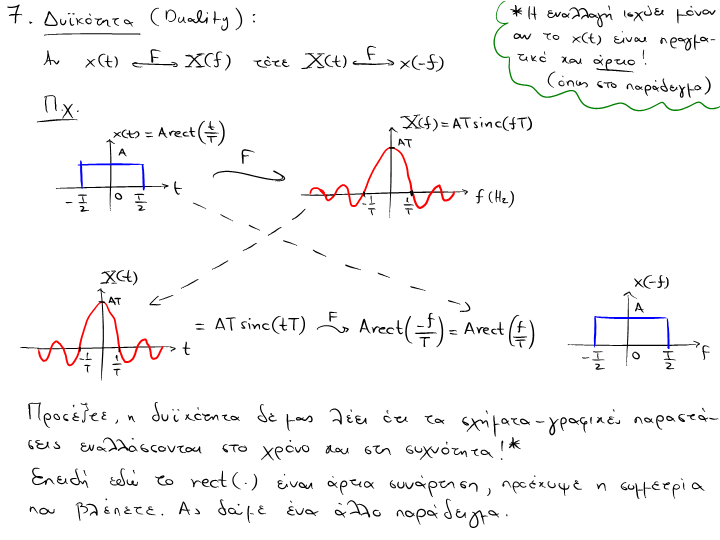 7. Δυϊκότητα (Duality) :
* Η εναλλαγή ισχύει μόνον
αν το x(t) είναι πραγμα-
τικό και άρτιο!
(όπως στο παράδειγμα)
Αν x(t) ⟷F X(f) τότε X(t) ⟷F x(-f)
Π.χ.
x(t) = Arect(t/T)
A
-T/2 0 T/2 t
F
X(f) = ATsinc(fT)
AT
-1/T 1/T f (Hz)
X(t)
AT
-1/T 1/T t
= ATsinc(tT) F Arect(-f/T) = Arect(f/T)
x(-f)
A
-T/2 0 T/2 f
Προσέξτε, η δυϊκότητα δε μας λέει ότι τα σχήματα-γραφικές παραστά-
σεις εναλλάσσονται στο χρόνο και στη συχνότητα!*
Επειδή εδώ το rect(·) είναι άρτια συνάρτηση, προέκυψε η συμμετρία
που βλέπετε. Ας δούμε ένα άλλο παράδειγμα.